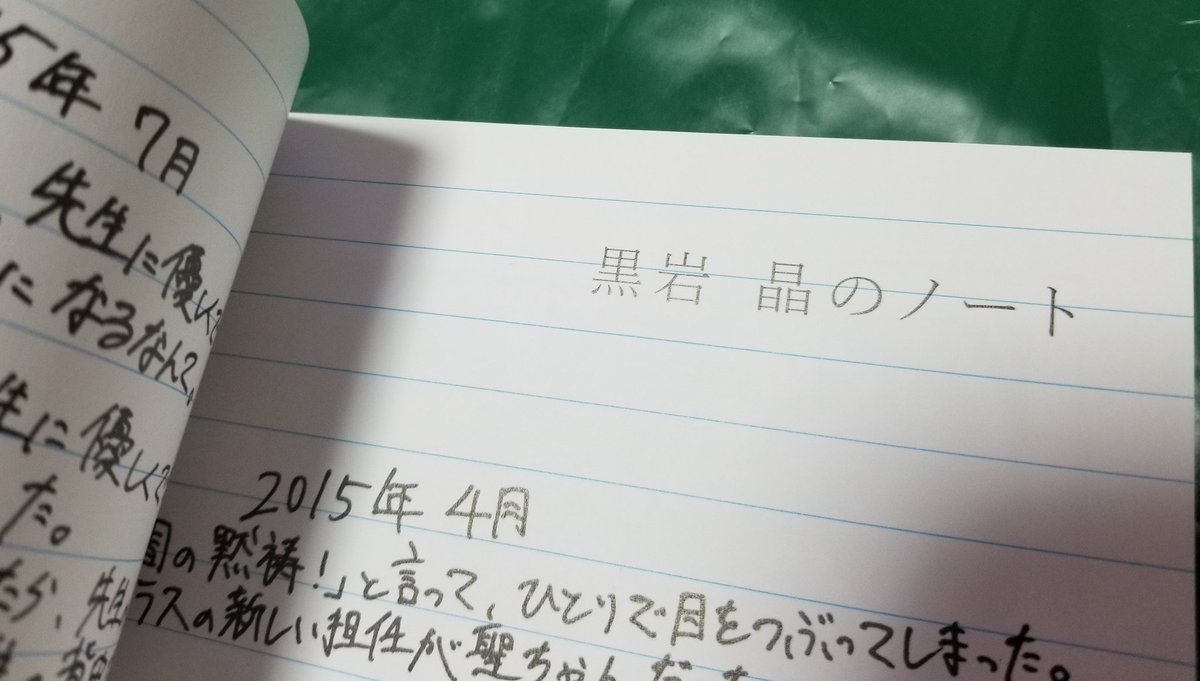 5年 7月
先生に優しく
になるなんて。
生に優しく
た。
たら、先生
黒岩 晶のノート
2015年 4月
園の黙祷!」と言って、ひとりで目をつぶってしまった。
ラスの新しい担任が聖ちゃんだっ